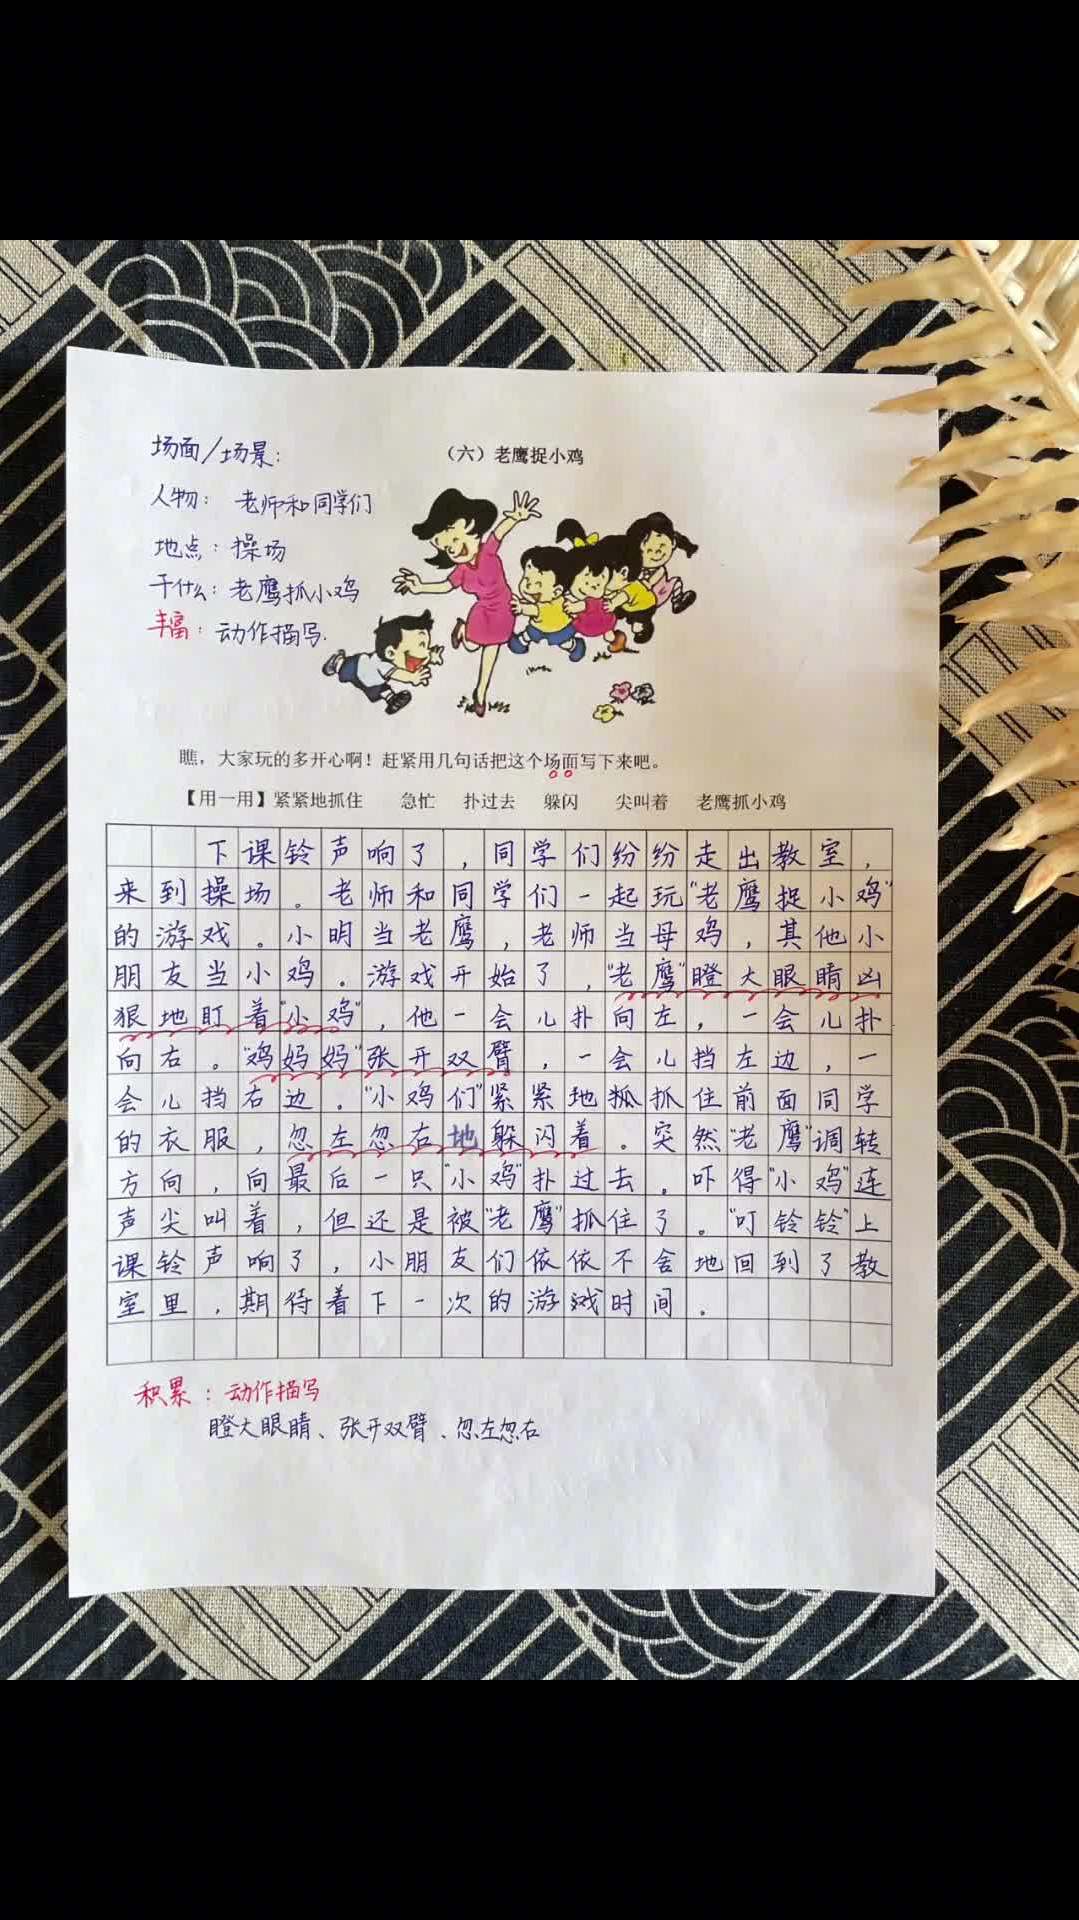 场面/场景:
（六）老鹰捉小鸡
人物: 老师和同学们
地点: 操场
干什么: 老鹰抓小鸡
丰富: 动作描写.
瞧，大家玩的多开心啊！赶紧用几句话把这个场面写下来吧。
【用一用】紧紧地抓住 急忙 扑过去 躲闪 尖叫着 老鹰抓小鸡
下课铃声响了，同学们纷纷走出教室，
来到操场。老师和同学们一起玩“老鹰捉小鸡”
的游戏。小明当老鹰，老师当母鸡，其他小
朋友当小鸡。游戏开始了，“老鹰”瞪大眼睛凶
狠地盯着“小鸡”，他一会儿扑向左，一会儿扑
向右。“鸡妈妈”张开双臂，一会儿挡左边，一
会儿挡右边。“小鸡们”紧紧地抓抓住前面同学
的衣服，忽左忽右地躲闪着。突然“老鹰”调转
方向，向最后一只“小鸡”扑过去。吓得“小鸡”连
声尖叫着，但还是被“老鹰”抓住了。“叮铃铃”上
课铃声响了，小朋友们依依不舍地回到了教
室里，期待着下一次的游戏时间。
积累: 动作描写
瞪大眼睛、张开双臂、忽左忽右